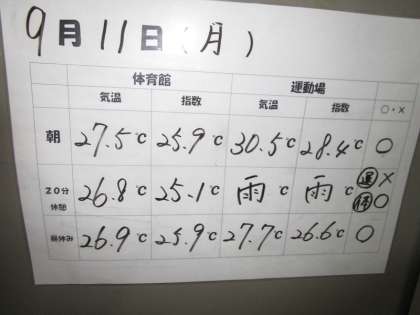 9月11日(月)
体育館 運動場
気温 指数 気温 指数 ○・×
朝 27.5℃ 25.9℃ 30.5℃ 28.4℃ ○
20分 26.8℃ 25.1℃ 雨℃ 雨℃ 運×
休憩 体○
昼休み 26.9℃ 25.9℃ 27.7℃ 26.6℃ ○